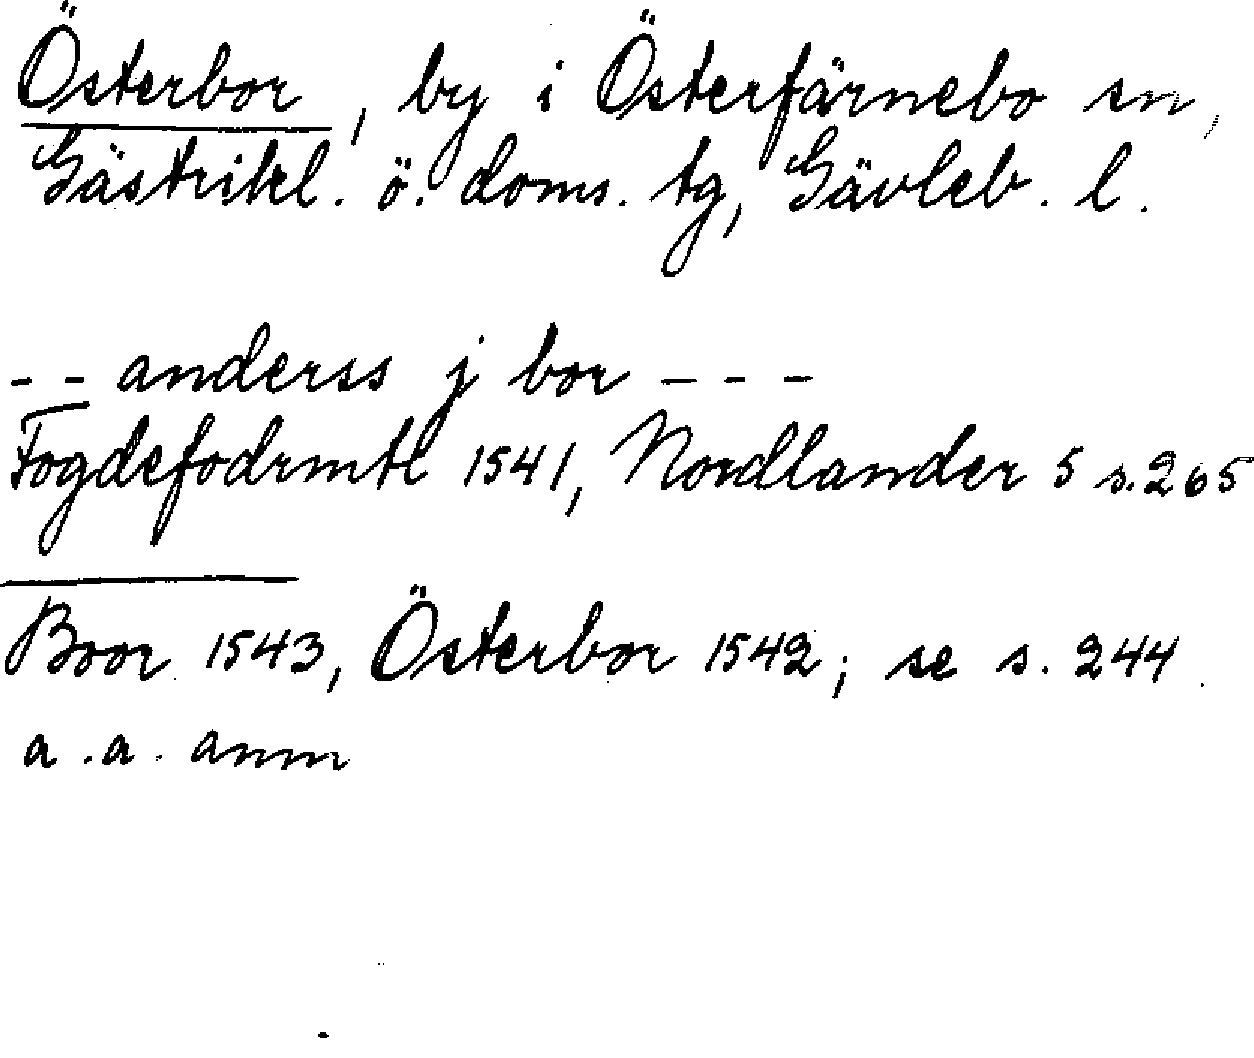 Österbor, by i Österfärnebo sn,
Gästrikl. ö. doms. tg, Gävleb. l.
- - anderss j bor - - -
Fogdefodrmtl 1541, Nordlander 5 s. 265
Boor 1543, Österbor 1542; se s. 244
a. a. anm